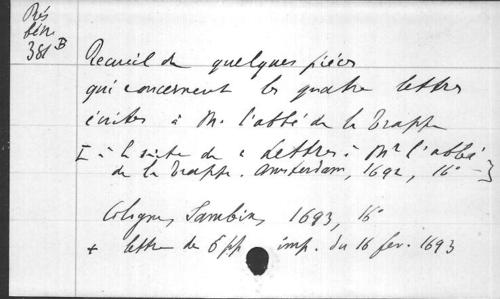 Rés
bén.
381 B
Recueil de quelques pièces
qui concernent les quatre lettres
écrites à Mr. l'abbé de la Trappe
[à la suite de « Lettres à Mr l'abbé
de la Trappe. Amsterdam, 1692, 16° –]
Cologne, Sambin, 1693, 16°
+ lettre de 6 pp imp. du 16 fev. 1693